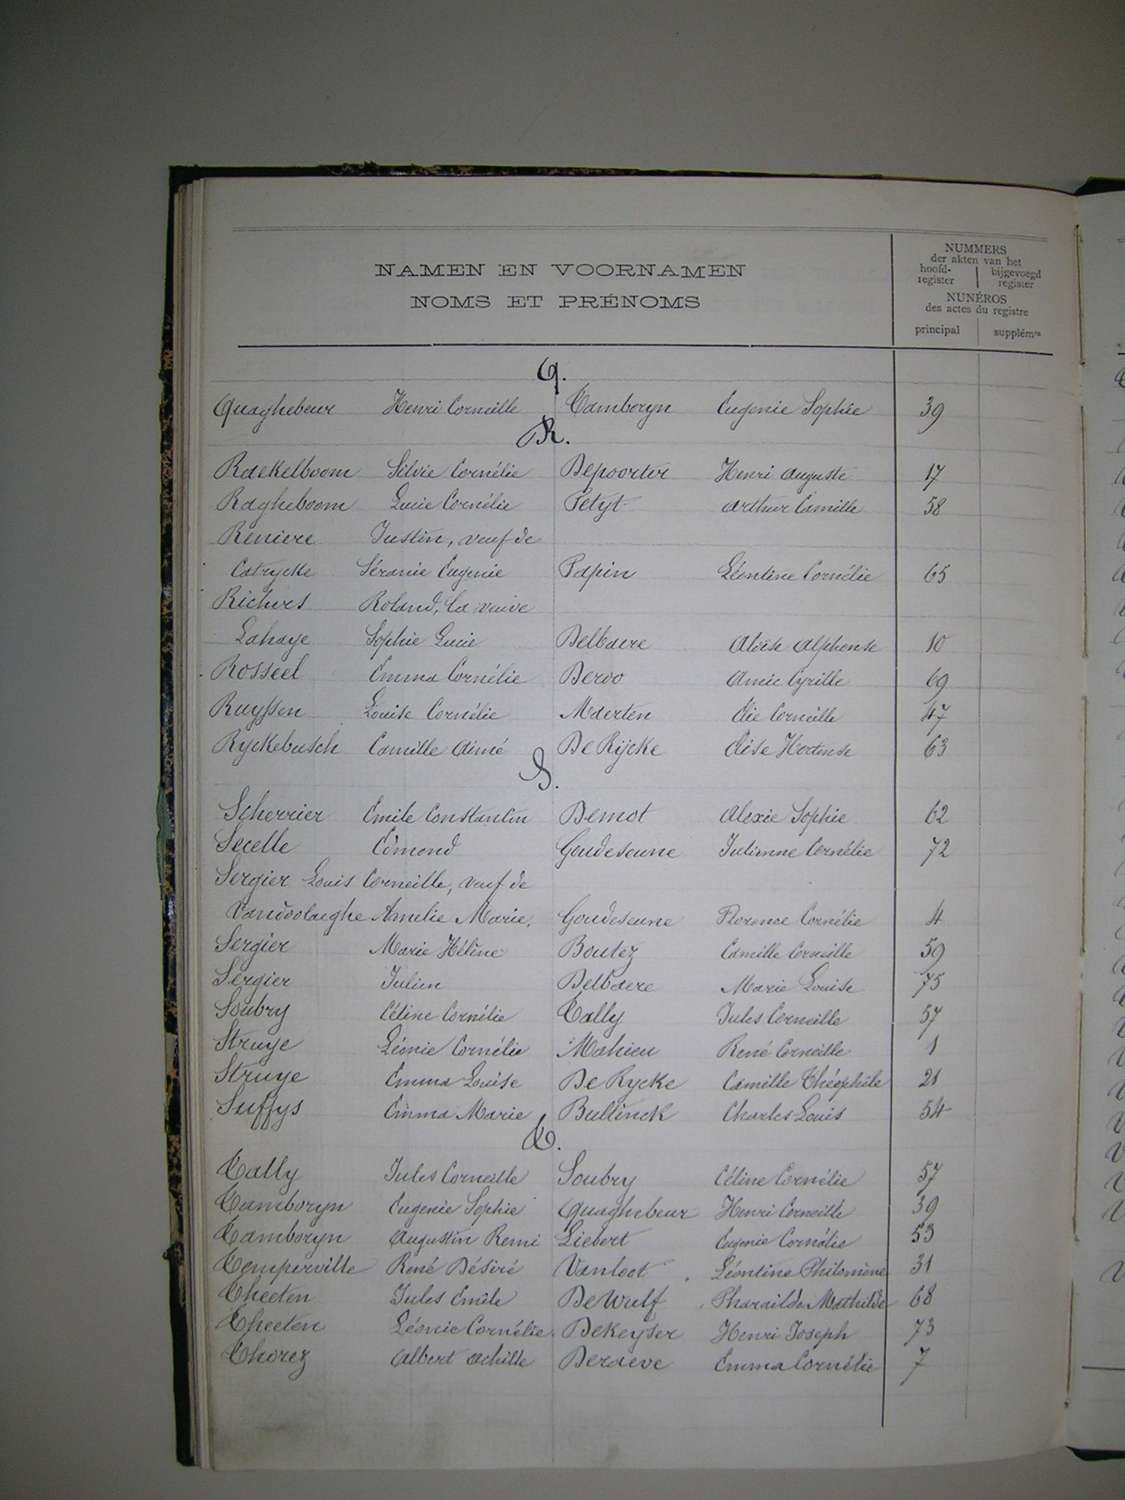 NAMEN EN VOORNAMEN
NOMS ET PRÉNOMS
NUMMERS
der akten van het
hoofd-register | bijgevoegd register
NUNÉROS
des actes du registre
principal | supplém^re
Q.
Quaghebeur Henri Corneille Tamboryn Eugenie Sophie 39
R.
Raekelboom Silvie Cornélie Depoorter Henri Auguste 17
Ragheboom Lucie Cornélie Petyt Arthur Camille 58
Reniere Justin, veuf de
Catrycke Séranie Eugenie Papin Léontine Cornélie 65
Richers Roland, la veuve
Lahaye Sophie Lucie Delbaere Aloïse Alphonse 10
Rosseel Emma Cornélie Deroo Amie Cyrille 69
Ruyssen Louise Cornélie Maerten Elie Corneille 47
Ryckebusch Camille Aimé De Rijcke Elise Hortense 63
S.
Scherrier Emile Constantin Demot Alexie Sophie 62
Secelle Edmond Goudeseune Julienne Cornélie 72
Sergier Louis Corneille, veuf de
Vandoolaeghe Amelie Marie, Goudeseune Florence Cornélie 4
Sergier Marie Hélène Boutez Camille Corneille 59
Sergier Julien Delbaere Marie Louise 75
Soubry Céline Cornélie Tally Jules Corneille 57
Struye Léonie Cornélie Mahieu René Corneille 1
Struye Emma Louise De Rycke Camille Théophile 21
Suffys Emma Marie Bullinck Charles Louis 54
T.
Tally Jules Corneille Soubry Céline Cornélie 57
Tamboryn Eugenie Sophie Quaghebeur Henri Corneille 39
Tamboryn Augustin Remi Liebert Eugenie Cornélie 53
Temperville René Désiré Vanloot Léontine Philomène 31
Theeten Jules Emile De Wulf Pharaïlde Mathilde 68
Theeten Léonie Cornélie Dekeyser Henri Joseph 73
Thorez Albert Achille Deraeve Emma Cornélie 7